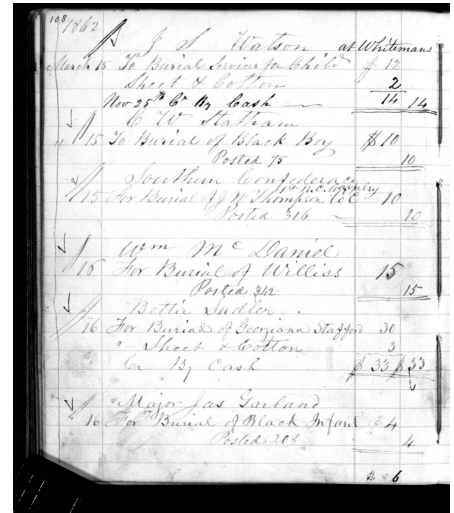 108
1862
J S Watson at Whitemans
March 15 To Burial Services for Child $ 12
Sheet & Cotton 2
Nov 25th Cr By Cash 14 14
C W Statham
" 15 To Burial of Black Boy $10
Posted 75 10
Southern Confederacy
1st N.C. Cavalry
15 For Burial of J W Thompson Co C 10
Posted 316 10
Wm Mc Daniel
16 For Burial of Williss 15
Posted 342 15
Bettie Sadler
16 For Burial of Georgiana Stafford 30
" Sheet & Cotton 3
Cr By Cash $ 33 $ 33
Major Jas Garland
16 For Burial of Black Infant $4
Posted 283 4
6